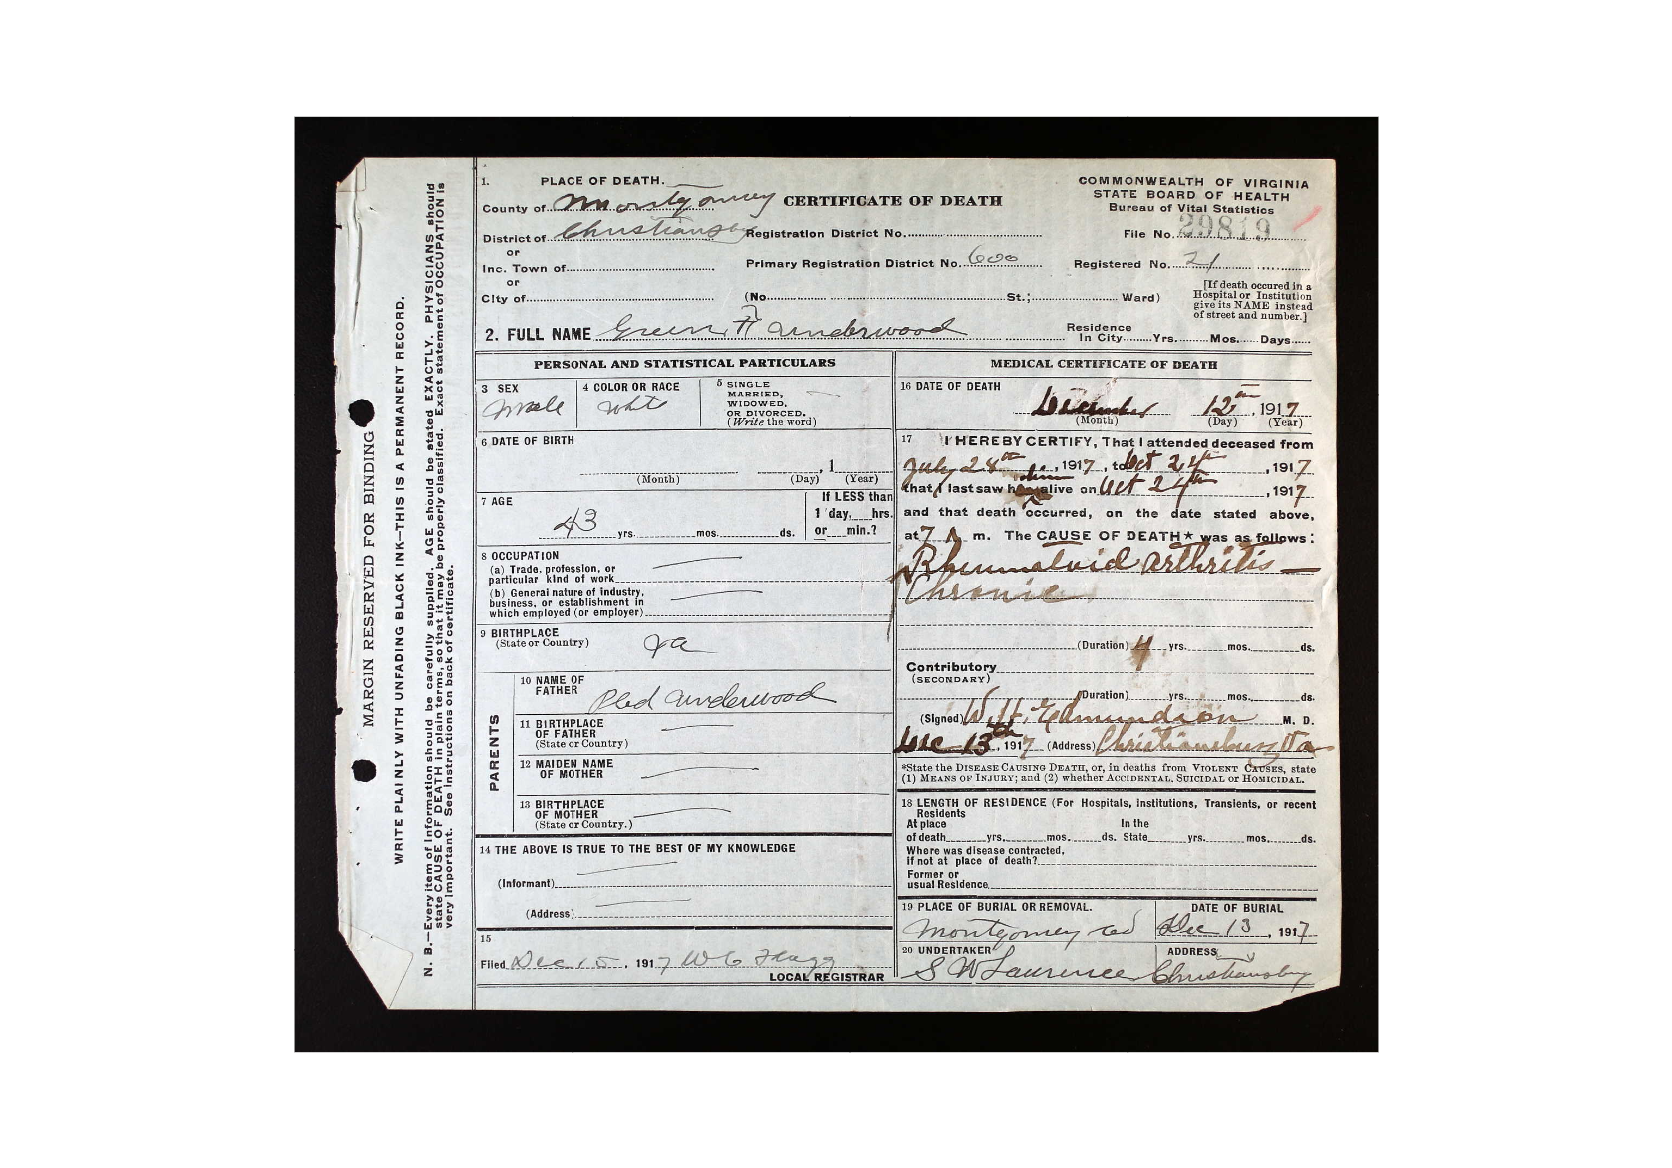 MARGIN RESERVED FOR BINDING
WRITE PLAINLY WITH UNFADING BLACK INK—THIS IS A PERMANENT RECORD.
N. B.—Every item of information should be carefully supplied. AGE should be stated EXACTLY. PHYSICIANS should
state CAUSE OF DEATH in plain terms, so that it may be properly classified. Exact statement of OCCUPATION is
very important. See instructions on back of certificate.
1. PLACE OF DEATH.
County of Montgomery
District of Christiansbg
or
Inc. Town of
or
City of
CERTIFICATE OF DEATH
Registration District No.
Primary Registration District No. 600
(No. St.; Ward)
COMMONWEALTH OF VIRGINIA
STATE BOARD OF HEALTH
Bureau of Vital Statistics
File No. 29819
Registered No. 21
[If death occured in a
Hospital or Institution
give its NAME instead
of street and number.]
2. FULL NAME Green H Underwood
Residence
In City Yrs. Mos. Days
PERSONAL AND STATISTICAL PARTICULARS
3 SEX
Male
4 COLOR OR RACE
Whit
5 SINGLE
MARRIED,
WIDOWED,
OR DIVORCED.
(Write the word)
6 DATE OF BIRTH
, 1
(Month) (Day) (Year)
7 AGE
43 yrs. mos. ds.
If LESS than
1 day, hrs.
or min.?
8 OCCUPATION
(a) Trade, profession, or
particular kind of work
(b) General nature of industry,
business, or establishment in
which employed (or employer)
9 BIRTHPLACE
(State or Country)
Va
PARENTS
10 NAME OF
FATHER
Pled Underwood
11 BIRTHPLACE
OF FATHER
(State or Country)
12 MAIDEN NAME
OF MOTHER
13 BIRTHPLACE
OF MOTHER
(State or Country.)
14 THE ABOVE IS TRUE TO THE BEST OF MY KNOWLEDGE
(Informant)
(Address)
15
Filed Dec 15, 1917 W C Flagg
LOCAL REGISTRAR
MEDICAL CERTIFICATE OF DEATH
16 DATE OF DEATH
December 12th, 1917
(Month) (Day) (Year)
17 I HEREBY CERTIFY, That I attended deceased from
July 28th, 1917, to Oct 24th, 1917
that I last saw him alive on Oct 24th, 1917
and that death occurred, on the date stated above,
at 7 A m. The CAUSE OF DEATH* was as follows:
Rheumatoid arthritis—
Chronic
(Duration) 4 yrs. mos. ds.
Contributory
(SECONDARY)
(Duration) yrs. mos. ds.
(Signed) W. H. Edmundson M. D.
Dec 13th, 1917 (Address) Christiansburg Va
*State the DISEASE CAUSING DEATH, or, in deaths from VIOLENT CAUSES, state
(1) MEANS OF INJURY; and (2) whether ACCIDENTAL, SUICIDAL or HOMICIDAL.
18 LENGTH OF RESIDENCE (For Hospitals, Institutions, Transients, or recent
Residents
At place In the
of death yrs. mos. ds. State yrs. mos. ds.
Where was disease contracted,
if not at place of death?
Former or
usual Residence
19 PLACE OF BURIAL OR REMOVAL.
Montgomery co
DATE OF BURIAL
Dec 13, 1917
20 UNDERTAKER
S W Laurence
ADDRESS
Christiansbg